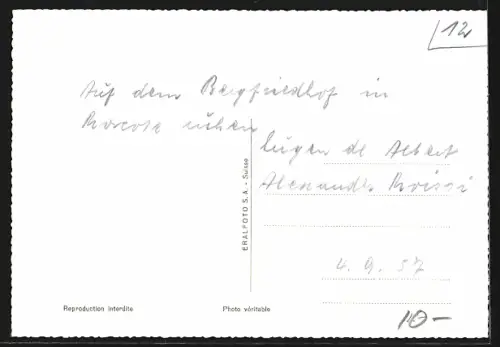 12
Auf dem Bergfriedhof in
Morcote ruhen
Eugen de Albert
Alexander Moissi
4. 9. 57
ERALFOTO S.A. - Suisse
Reproduction interdite
Photo véritable
10-